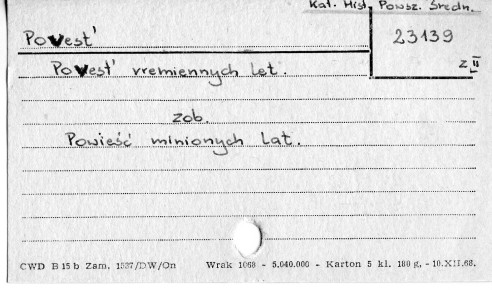 Kat. Hist. Powsz. Średn.
Povest'
23139
z II
Povest' vremiennych let.
zob.
Powieść minionych lat.
CWD B 15 b Zam. 1537/DW/On Wrak 1068 - 5.040.000 - Karton 5 kl. 180 g, - 10.XII.68.